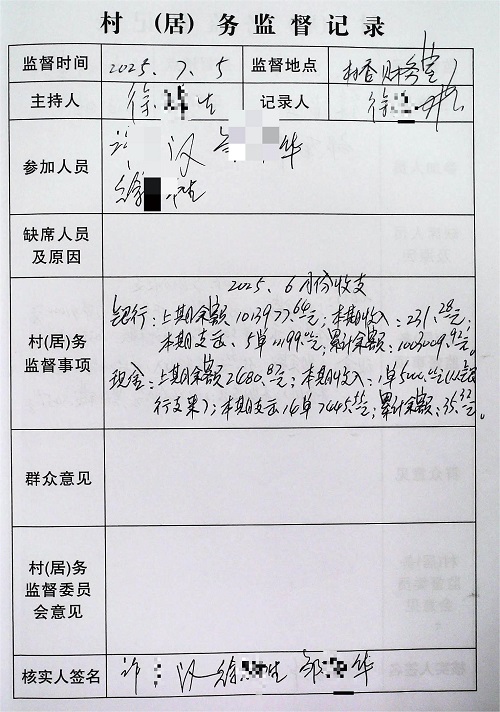 村 (居) 务 监 督 记 录
监督时间 2025. 7. 5 监督地点 村委财务室
主持人 徐 生 记录人 徐
参加人员 许 汉 邹 华
徐 生
缺席人员
及原因
2025. 6月份收支
村(居)务
监督事项
银行:上期余额1013977.64元;本期收入:231.28元;
本期支出、5单11199.00元;累计余额:1003009.92元。
现金:上期余额2480.87元;本期收入:1单5000.00元(银
行支票);本期支出14单7445.55元;累计余额:35.32元。
群众意见
村(居)务
监督委员
会意见
核实人签名 许 汉 徐 生 邹 华